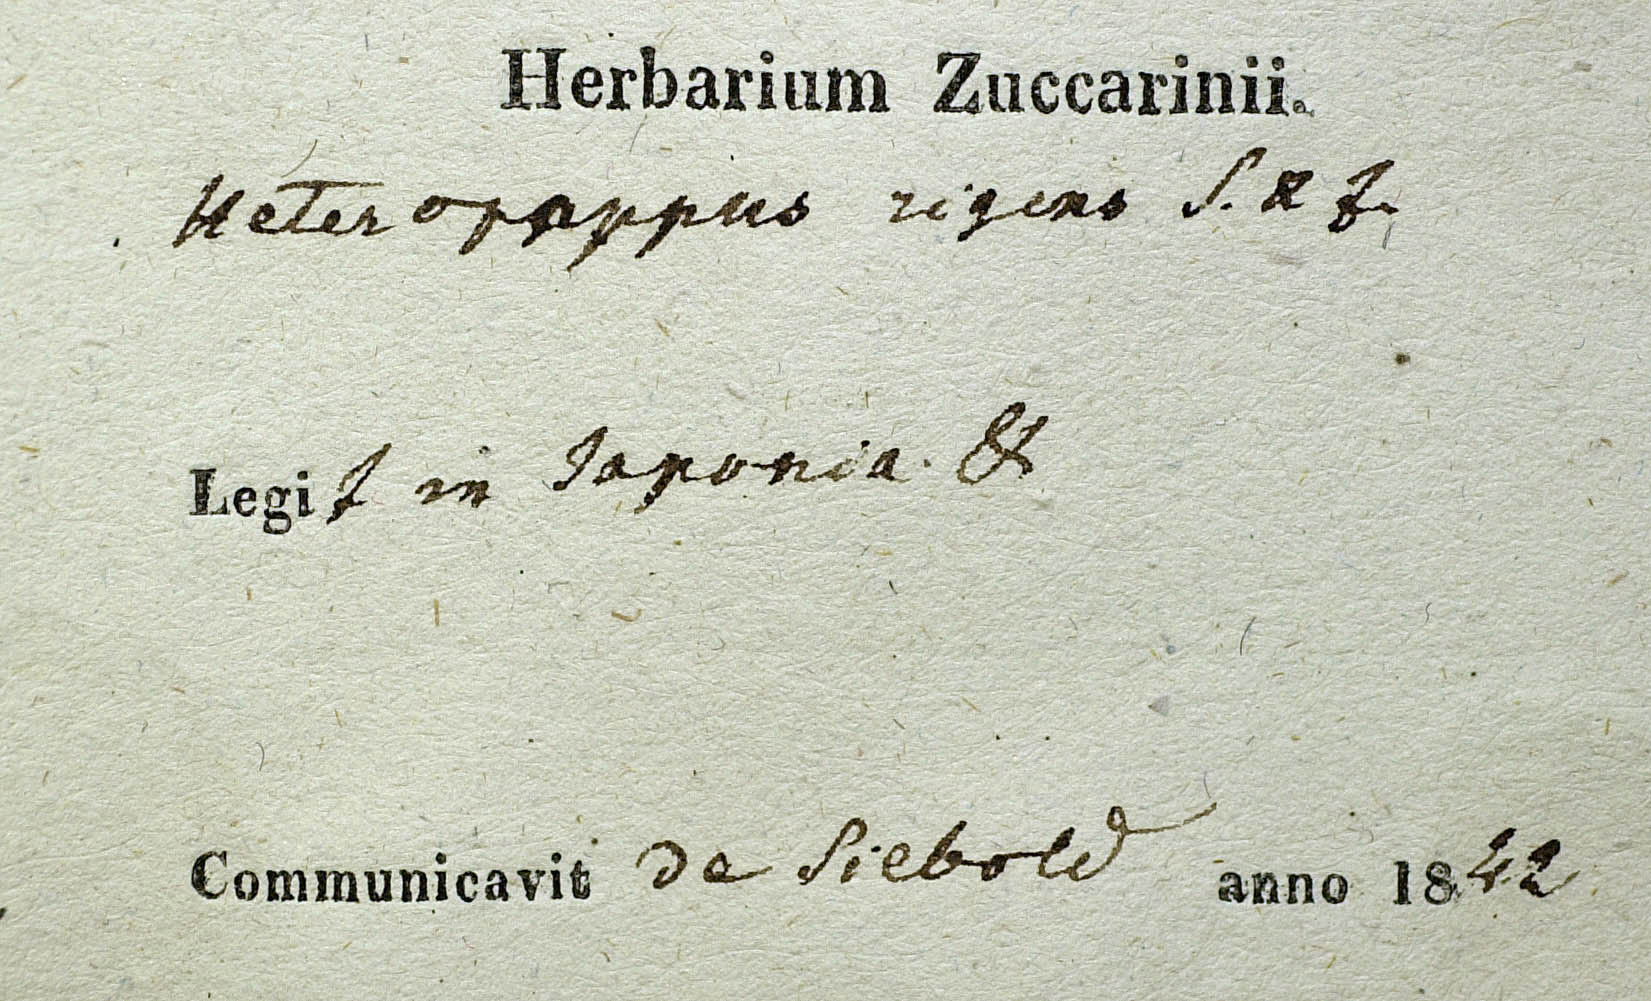 Herbarium Zuccarinii.
Heteropappus rigens S. & Z.
Legit in Japonia. &
Communicavit de Siebold anno 1842